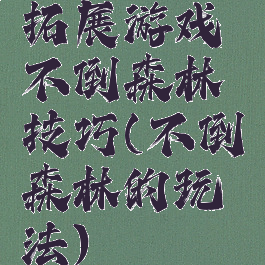 拓展游戏
不倒森林
技巧(不倒
森林的玩
法)